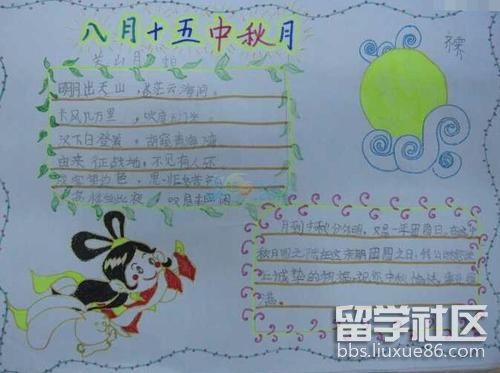 八月十五中秋月
关山月
明月出天山，苍茫云海间。
长风几万里，吹度玉门关
汉下白登道，胡窥青海湾
由来征战地，不见有人还
戍客望边色，思归多苦颜
高楼当此夜，叹息未应闲
月到中秋分外明，又是一年团圆日，在这个
秋月明之际在这亲朋团圆之日，
上诚挚的祝福，祝你中秋愉快，
满。
留学社区
bbs.liuxue86.com